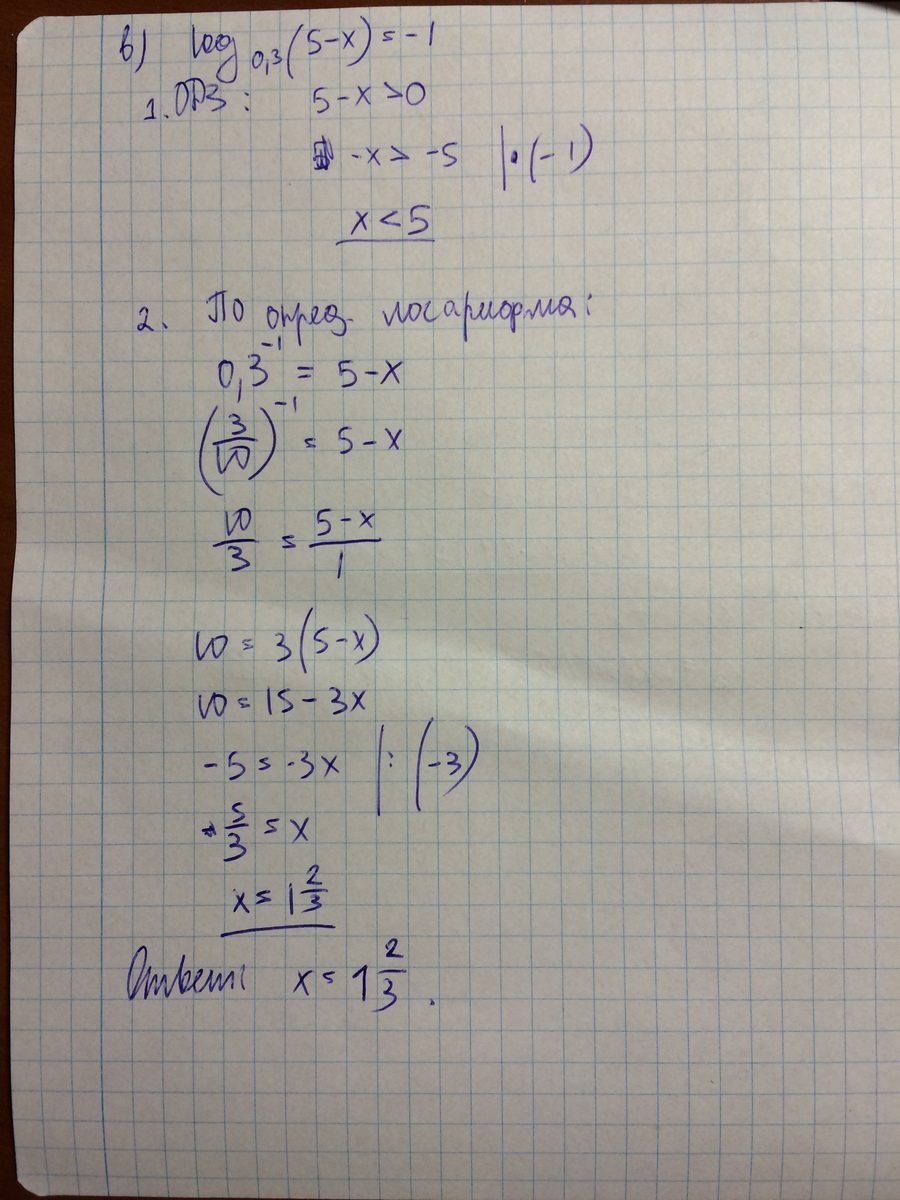 в) log₀,₃(5-x) = -1
1. ОДЗ: 5-x>0
-x> -5 |·(-1)
x<5
2. По опред. логарифма:
0,3⁻¹ = 5-x
(3/10)⁻¹ = 5-x
10/3 = (5-x)/1
10 = 3(5-x)
10 = 15-3x
-5 = -3x |:(-3)
5/3 = x
x = 1 2/3
Ответ: x = 1 2/3.